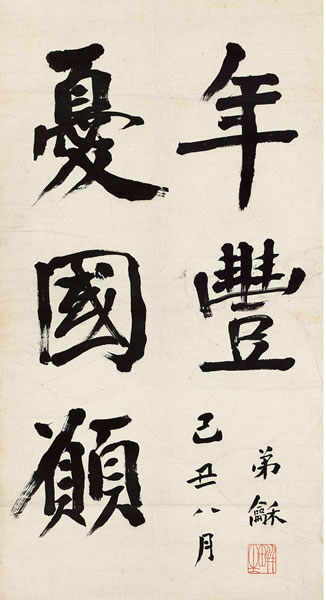 憂國願
年豐
己丑八月
弟龢